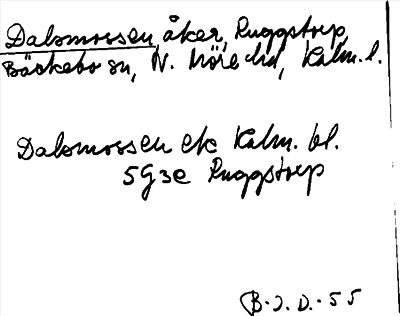 Dalsmossen, åker, Ruggstorp,
Bäckebo sn, N. Möre hd, Kalm. l.
Dalsmossen ek Kalm. bl.
5G3e Ruggstorp
B.J.D. - 55